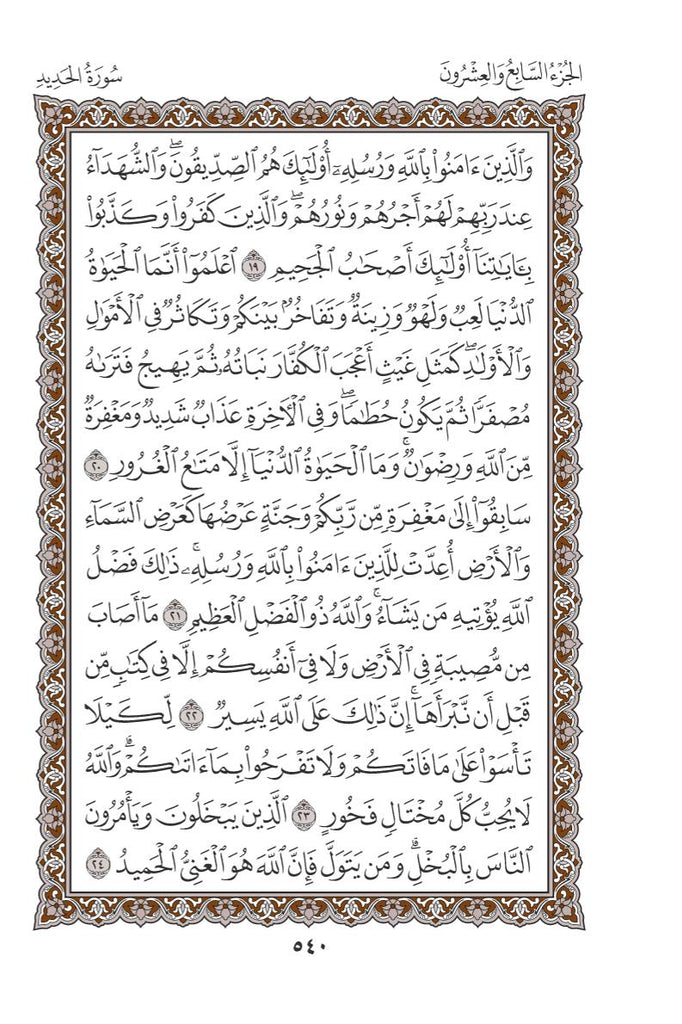 الجُزْءُ السَّابِعُ وَالعِشْرُونَ
سُورَةُ الحَدِيدِ
وَٱلَّذِينَ ءَامَنُوا۟ بِٱللَّهِ وَرُسُلِهِۦٓ أُو۟لَٰٓئِكَ هُمُ ٱلصِّدِّيقُونَۖ وَٱلشُّهَدَآءُ
عِندَ رَبِّهِمْ لَهُمْ أَجْرُهُمْ وَنُورُهُمْۖ وَٱلَّذِينَ كَفَرُوا۟ وَكَذَّبُوا۟
بِـَٔايَٰتِنَآ أُو۟لَٰٓئِكَ أَصْحَٰبُ ٱلْجَحِيمِ ١٩ ٱعْلَمُوٓا۟ أَنَّمَا ٱلْحَيَوٰةُ
ٱلدُّنْيَا لَعِبٌ وَلَهْوٌ وَزِينَةٌ وَتَفَاخُرٌۢ بَيْنَكُمْ وَتَكَاثُرٌ فِى ٱلْأَمْوَٰلِ
وَٱلْأَوْلَٰدِۖ كَمَثَلِ غَيْثٍ أَعْجَبَ ٱلْكُفَّارَ نَبَاتُهُۥ ثُمَّ يَهِيجُ فَتَرَىٰهُ
مُصْفَرًّا ثُمَّ يَكُونُ حُطَٰمًاۖ وَفِى ٱلْءَاخِرَةِ عَذَابٌ شَدِيدٌ وَمَغْفِرَةٌ
مِّنَ ٱللَّهِ وَرِضْوَٰنٌۚ وَمَا ٱلْحَيَوٰةُ ٱلدُّنْيَآ إِلَّا مَتَٰعُ ٱلْغُرُورِ ٢٠
سَابِقُوٓا۟ إِلَىٰ مَغْفِرَةٍ مِّن رَّبِّكُمْ وَجَنَّةٍ عَرْضُهَا كَعَرْضِ ٱلسَّمَآءِ
وَٱلْأَرْضِ أُعِدَّتْ لِلَّذِينَ ءَامَنُوا۟ بِٱللَّهِ وَرُسُلِهِۦۚ ذَٰلِكَ فَضْلُ
ٱللَّهِ يُؤْتِيهِ مَن يَشَآءُۚ وَٱللَّهُ ذُو ٱلْفَضْلِ ٱلْعَظِيمِ ٢١ مَآ أَصَابَ
مِن مُّصِيبَةٍ فِى ٱلْأَرْضِ وَلَا فِىٓ أَنفُسِكُمْ إِلَّا فِى كِتَٰبٍ مِّن
قَبْلِ أَن نَّبْرَأَهَآۚ إِنَّ ذَٰلِكَ عَلَى ٱللَّهِ يَسِيرٌ ٢٢ لِّكَيْلَا
تَأْسَوْا۟ عَلَىٰ مَا فَاتَكُمْ وَلَا تَفْرَحُوا۟ بِمَآ ءَاتَىٰكُمْۗ وَٱللَّهُ
لَا يُحِبُّ كُلَّ مُخْتَالٍ فَخُورٍ ٢٣ ٱلَّذِينَ يَبْخَلُونَ وَيَأْمُرُونَ
ٱلنَّاسَ بِٱلْبُخْلِۗ وَمَن يَتَوَلَّ فَإِنَّ ٱللَّهَ هُوَ ٱلْغَنِىُّ ٱلْحَمِيدُ ٢٤
٥٤٠